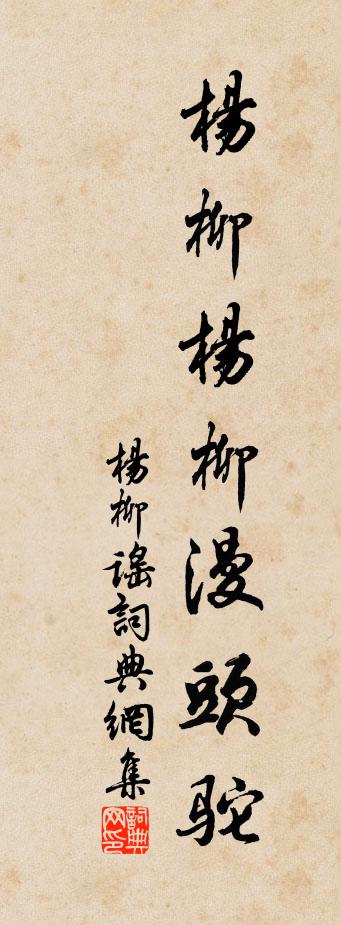 楊柳楊柳漫頭駝
楊柳謠詞典網集
詞典网印